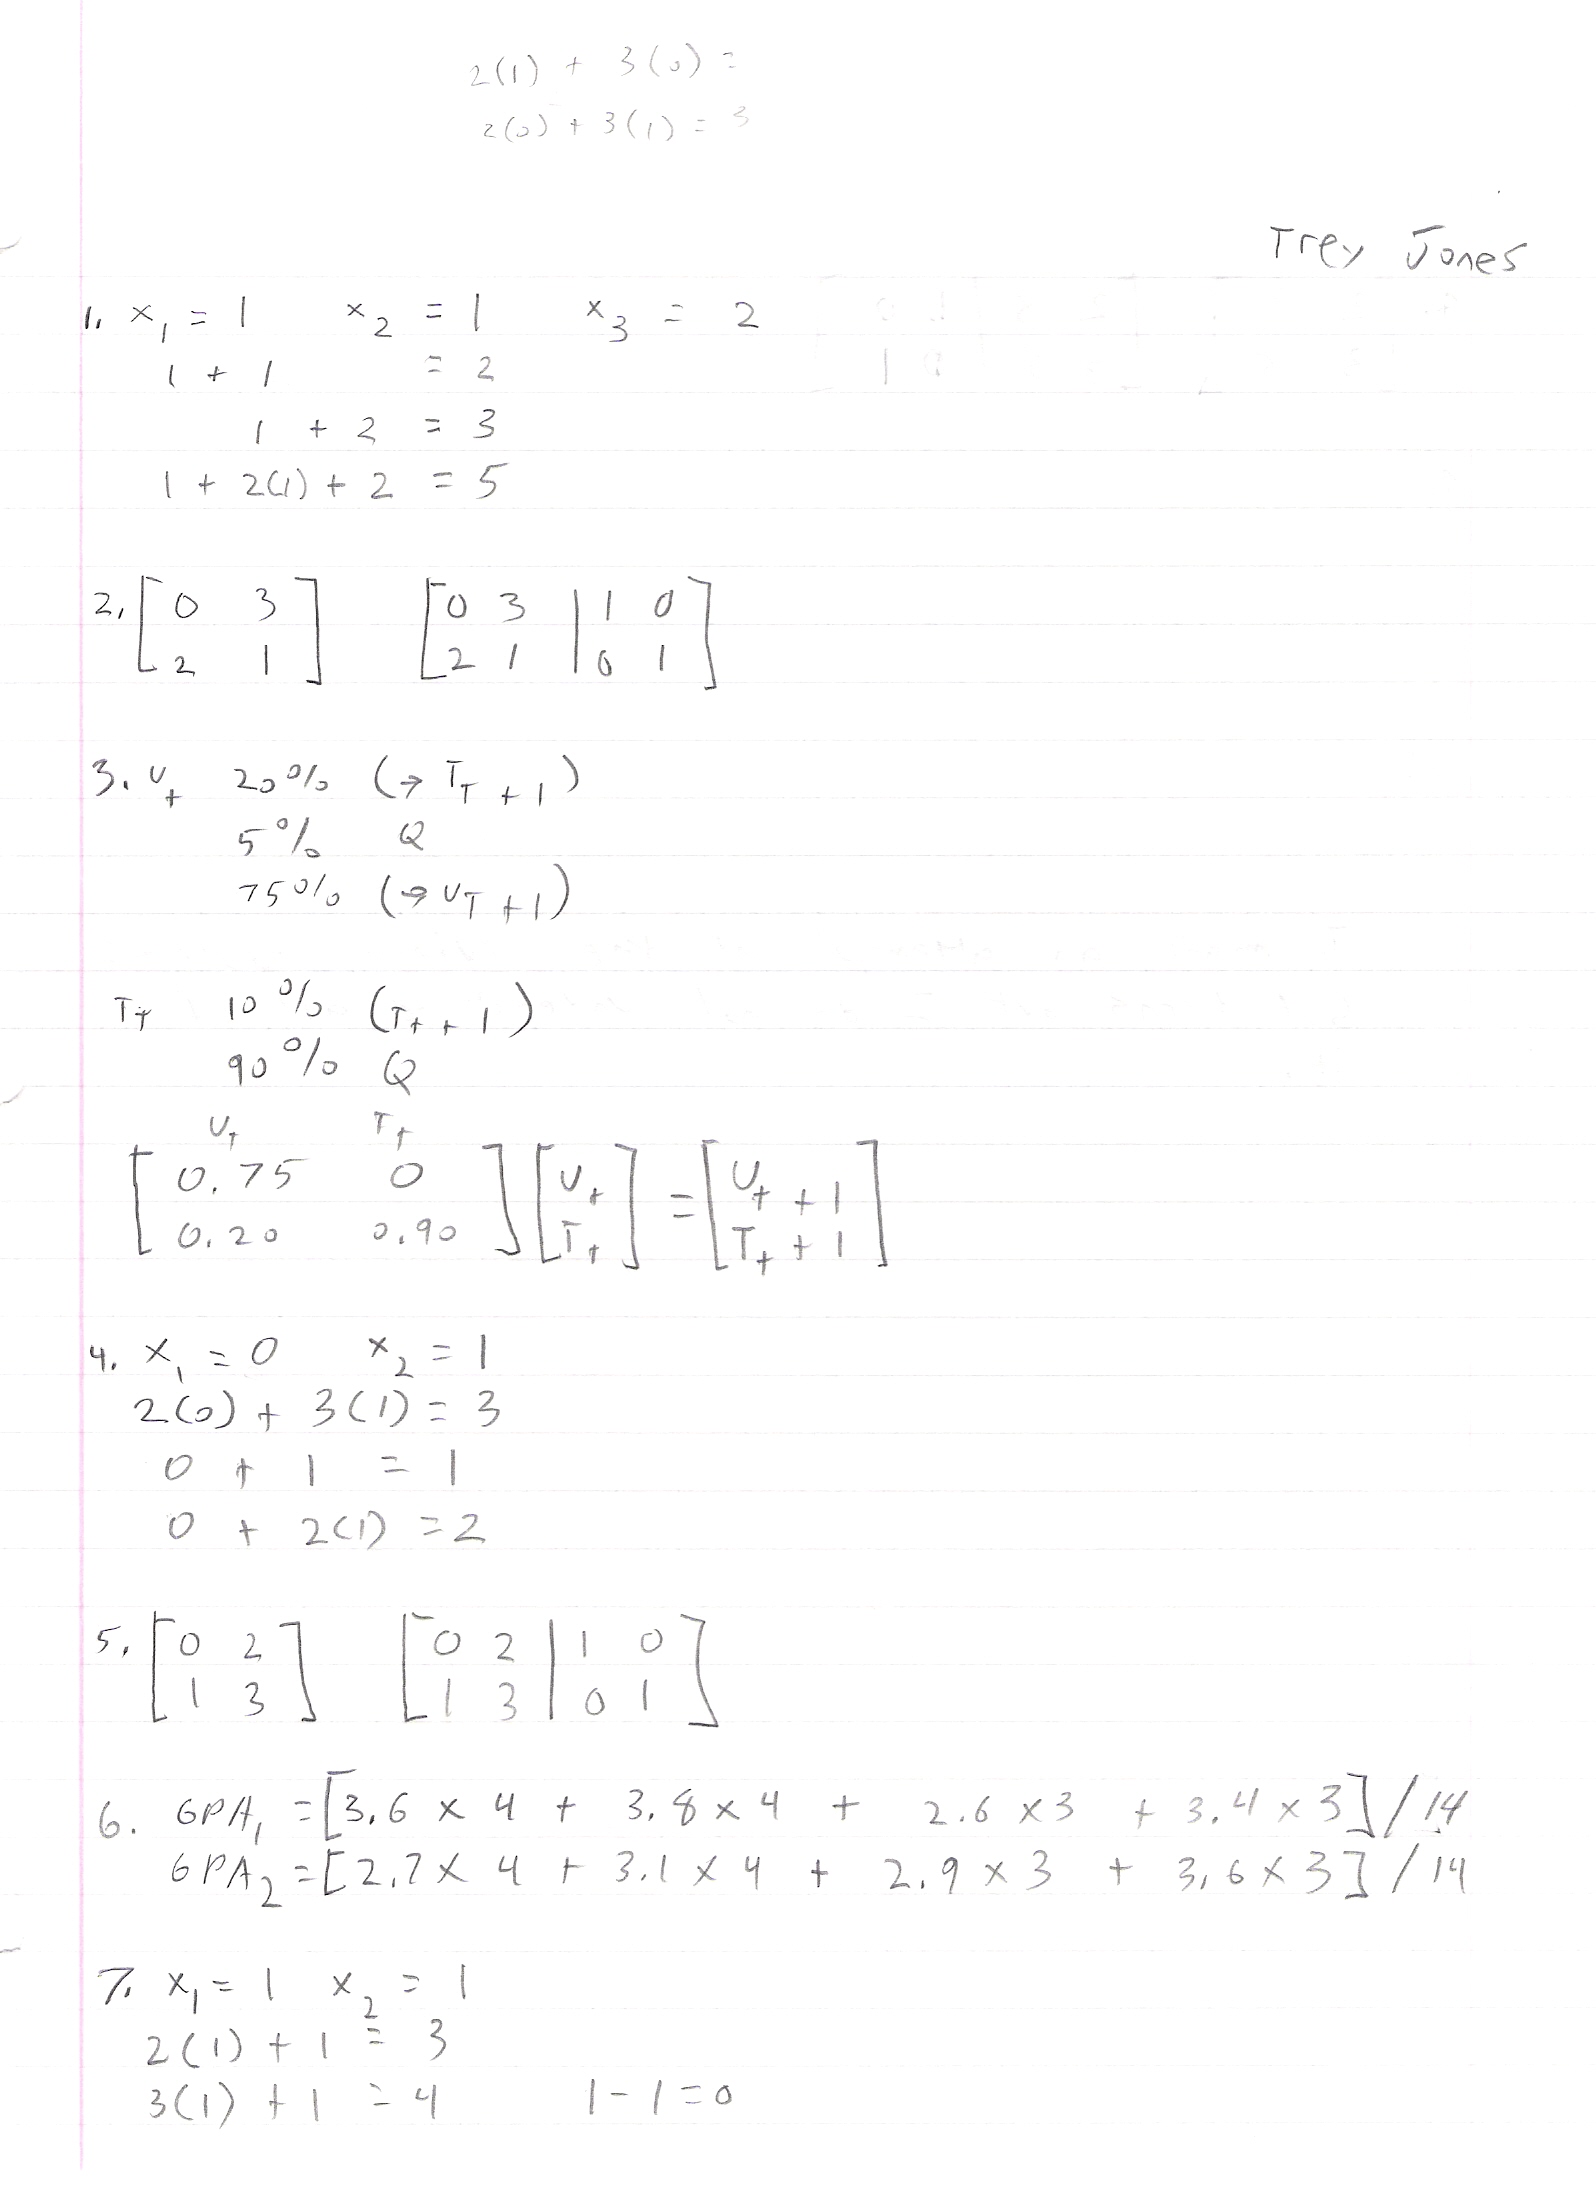 2(1) + 3(0) =
2(0) + 3(1) = 3
Trey Jones
1. x₁ = 1 x₂ = 1 x₃ = 2
1 + 1 = 2
1 + 2 = 3
1 + 2(1) + 2 = 5
2. [0 3] [0 3 | 1 0]
[2 1] [2 1 | 0 1]
3. U_t 20% (→ T_T + 1)
5% Q
75% (→ U_T + 1)
T_t 10% (T_t + 1)
90% Q
U_t T_t
[0.75 0] [U_t] = [U_t + 1]
[0.20 0.90] [T_t] [T_t + 1]
4. x₁ = 0 x₂ = 1
2(0) + 3(1) = 3
0 + 1 = 1
0 + 2(1) = 2
5. [0 2] [0 2 | 1 0]
[1 3] [1 3 | 0 1]
6. GPA₁ = [3.6 × 4 + 3.8 × 4 + 2.6 × 3 + 3.4 × 3] / 14
GPA₂ = [2.7 × 4 + 3.1 × 4 + 2.9 × 3 + 3.6 × 3] / 14
7. x₁ = 1 x₂ = 1
2(1) + 1 = 3
3(1) + 1 = 4 1 - 1 = 0